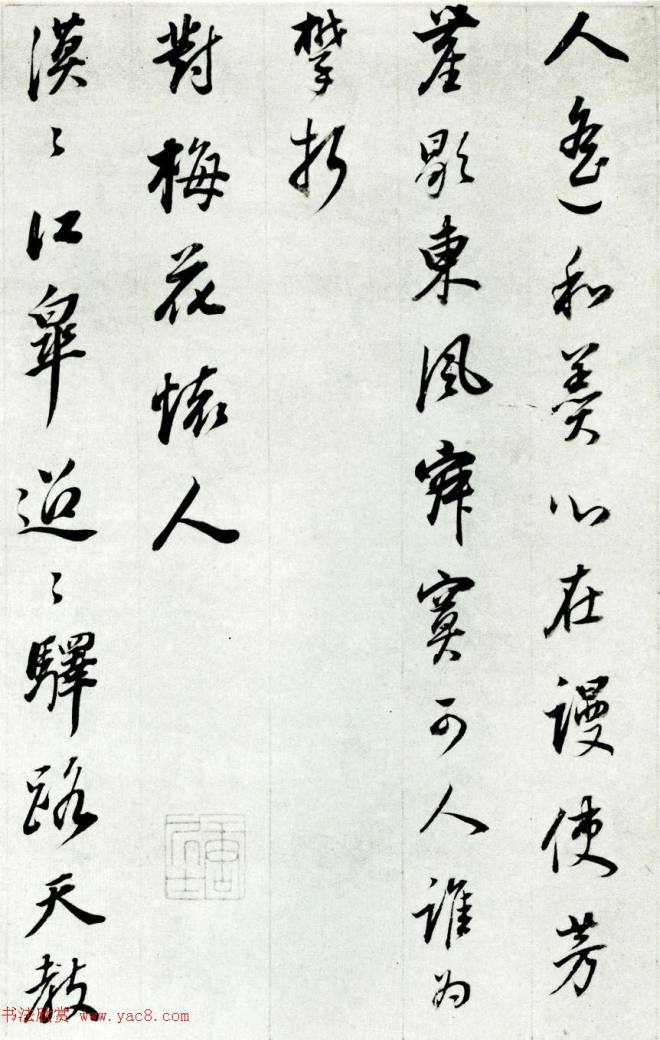 人和羹心在謾使芳
塵歇東風寂寞可人誰為
攀折
對梅花懷人
漠〻江皋迢〻驛路天教
书法欣赏 www.yac8.com